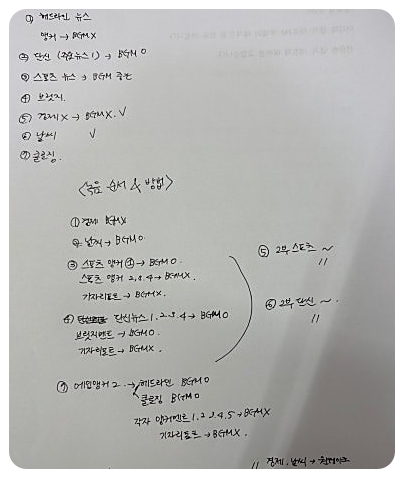 ① 헤드라인 뉴스
앵커 → BGM X
② 단신 (주요뉴스 1) → BGM O
③ 스포츠 뉴스 → BGM 중간
④ 브릿지.
⑤ 경제 X → BGM X. √
⑥ 날씨 √
⑦ 클로징.
<녹음 순서 & 방법>
① 경제 BGM X
② 날씨 → BGM O
③ 스포츠 앵커 ① → BGM O.
스포츠 앵커 2, 3, 4 → BGM X.
기자리포트 → BGM X.
④ 단신뉴스 1, 2, 3, 4 → BGM O
브릿지멘트 → BGM O.
기자리포트 → BGM X.
⑤ 2부 스포츠 ~
〃
⑥ 2부 단신 ~.
〃
⑦ 메인앵커 2 → 헤드라인 BGM O
클로징 BGM O
각자 앵커멘트 1, 2, 3, 4, 5 → BGM X
기자리포트 → BGM X.
〃 경제, 날씨 →